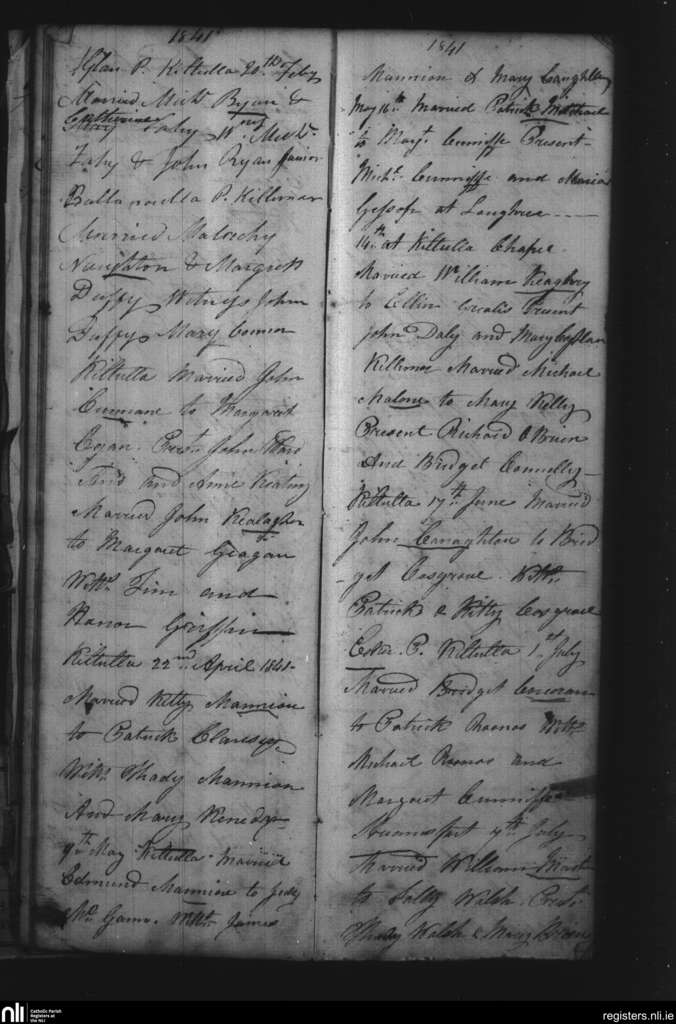 1841
P. Kiltulla 20th Feby
Married Michl. Byan &
Catherine
Mary Fahy Wit Michl.
Fahy & John Ryan Junior
P. Killimar
Married Malachy
Naughton & Margrett
Duffy Witness John
Duffy Mary Connor
Kiltulla Married John
Cunniane to Margaret
Egan. Prest. John
and Anne Keating
Married John
to Margaret Geagan
Witts. Tim and
Honor Griffin
Kiltulla 22nd April 1841
Married Kitty Mannion
to Patrick Clansey
Witts. Thady Mannion
And Mary Kenedy
9th May Kiltulla Married
Edmund Mannion to Judy
Witts. James
1841
Mannion & Mary Caughlan
May 16th Married Patrick
to Margt. Cunniffe Present
Michl. Cunniffe and Maria
Jessop at Loughrea
14th at Kiltulla Chapel
Married William Keaghry
to Present
John Daly and Mary
Killimor Married Michael
Malone to Mary Kelly
Present Richard O Brien
And Bridget Connelly
Kiltulla 17th June Married
John Canaghton to Brid
get Cosgrave. Witts.
Patrick & Kitty Cosgrave
Esker. P. Kiltulla 1st July
Married Bridget Corcoran
to Patrick Witts.
Michael and
Margaret Cunniffe
7th July
Married William
to Sally Walsh. Prest.
Thady Walsh & Mary Brien
nli
Catholic Parish
Registers at
the NLI
registers.nli.ie